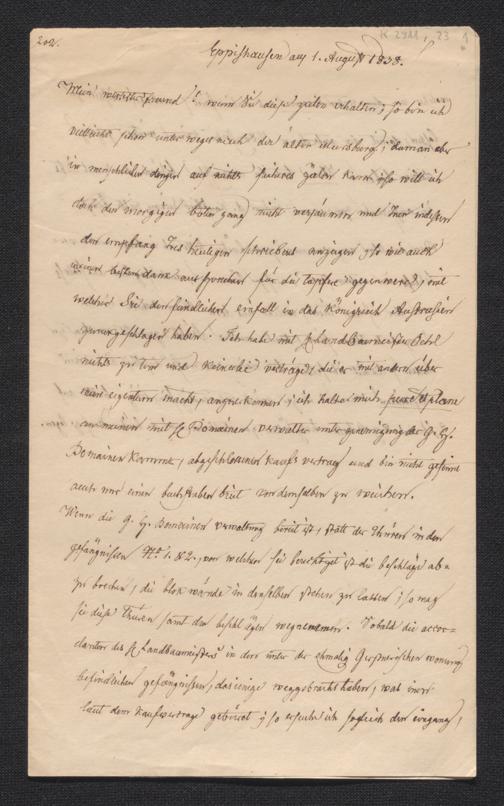 202.
K 2911, 23
1
Eppishausen am 1. August 1838.
Mein werther freund! wenn Sie diese zeilen erhalten, so bin ich
vielleicht schon unter weges nach der alten Meersburg; da man aber
in menschlichen dingen auf nichts sicheres zälen kann, so will ich
doch den morgigen boten gang nicht versäumen und Inen indessen
den empfang Ires heutigen schreibens anzeigen, so wie auch
meinen besten dank aussprechen für die tapfere gegenwere, mit
welcher Sie den feindlichen einfall in das Königreich Austrasien
zurückgeschlagen haben. Ich habe mit H Landbaumeister Oehl
nichts zu tun und keinerlei verträge, die er mit andern über
mein eigentum macht, angenommen; ich halte mich
an meinen mit H Domainen verwalter unter genemigung der G. H.
Domainen Kammer, abgeschlossenen Kaufs vertrag und bin nicht gesinnt
auch nur einen buchstaben breit von demselben zu weichen.
Wenn die G. H. Domainen verwaltung bereit ist, statt der Thüren in den
gefängnissen No 1. & 2., von welchen sie berechtiget ist die beschläge ab=
zu brechen, die blok wände in denselben stehen zu lassen; so mag
sie diese Thüren samt den beschlägen wegnemen. Sobald die accor=
danten des H Landbaumeisters in den unter der ehmalig
befindlichen gefängnissen, dasienige weggebracht haben, was inen
laut dem Kaufvertrage gebürt; so ersuche ich sogleich den eingang,